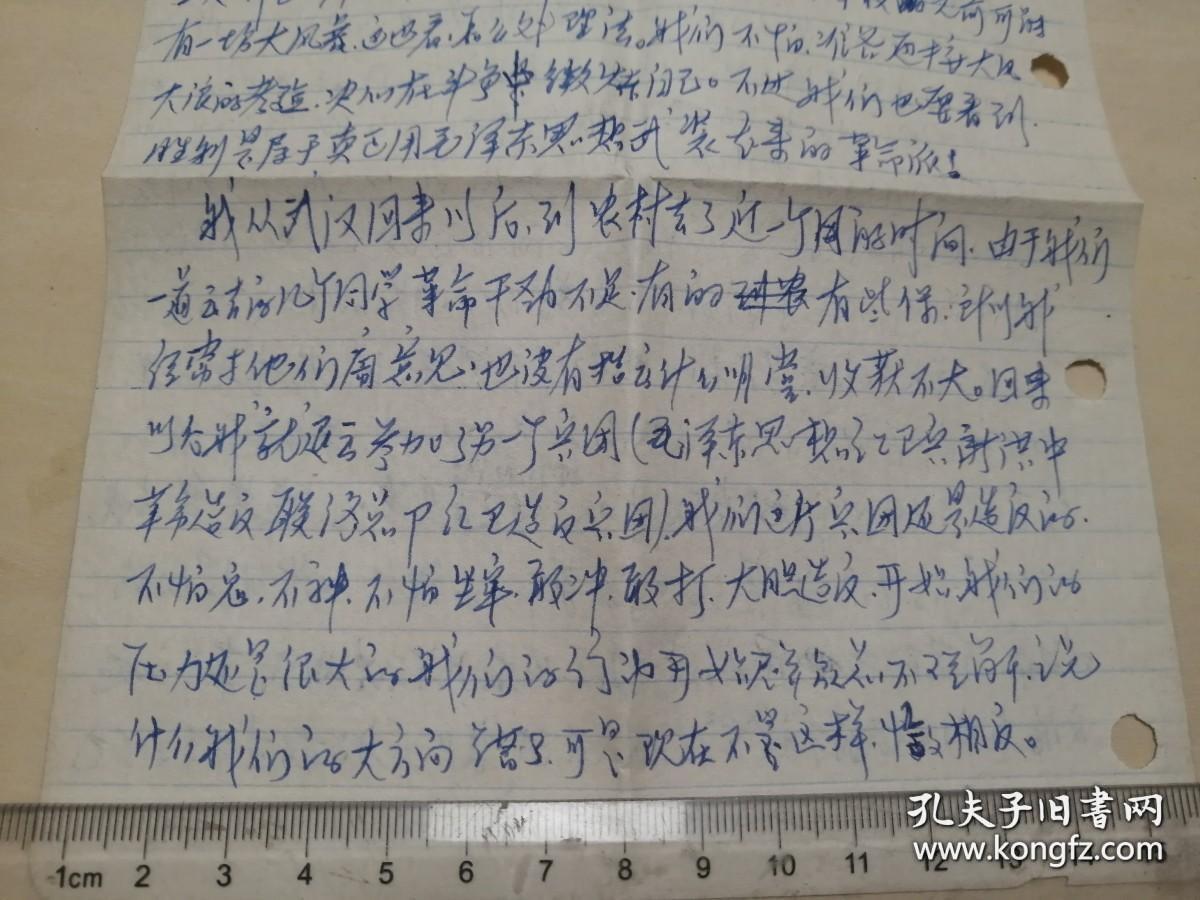 有一场大风暴,
我们不怕,准备迎接大风
大浪的考验,决心在斗争中
自己。不过我们也要看到,
胜利是属于真正用毛泽东思想武装起来的革命派!
我从武汉回来以后,到农村去了近一个月的时间,由于我们
一道去的几个同学革命干劲不足,有的有些保,
经常和他们闹意见,也没有搞出什么明堂,收获不大。回来
以后我就返去参加了另一个兵团(毛泽东思想红卫兵
革命造反联络总 红卫造反兵团),我们这个兵团还是造反的,
不怕鬼,不 神,不怕坐牢,敢冲,敢打,大胆造反,开始,我们的
压力还是很大的,我们的行为开始群众总不理解,说
什么我们的大方向错了,可是现在不是这样,恰恰相反。
1cm 2 3 4 5 6 7 8 9 10 11 12 13
孔夫子旧书网
www.kongfz.com